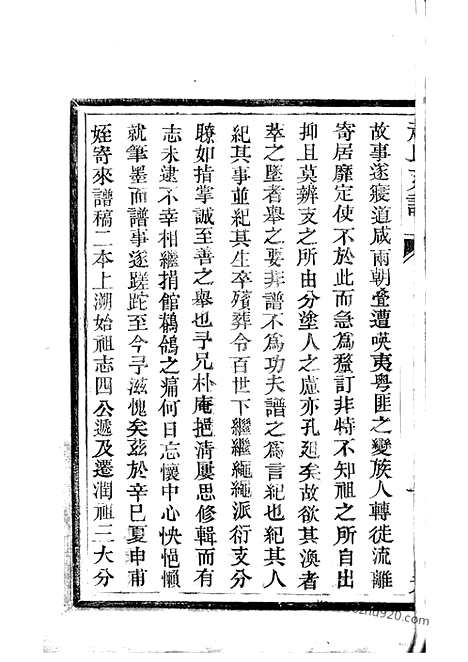 故事遂寢道咸兩朝叠遭𠸄夷粤匪之變族人轉徙流離
寄居靡定使不於此而急為釐訂非特不知祖之所自出
抑且莫辨支之所由分塗人之慮亦孔廹矣故欲其渙者
萃之墜者舉之要非譜不為功夫譜之為言紀也紀其人
紀其事並紀其生卒殯葬令百世下繼繼繩繩派衍支分
瞭如指掌誠至善之舉也予兄朴庵挹清屢思修輯而有
志未逮不幸相繼捐館鶺鴒之痛何日忘懷中心怏悒懶
就筆墨而譜事遂蹉跎至今予滋愧矣兹於辛巳夏申甫
姪寄來譜稿二本上溯始祖志四公遞及遷潤祖三大分